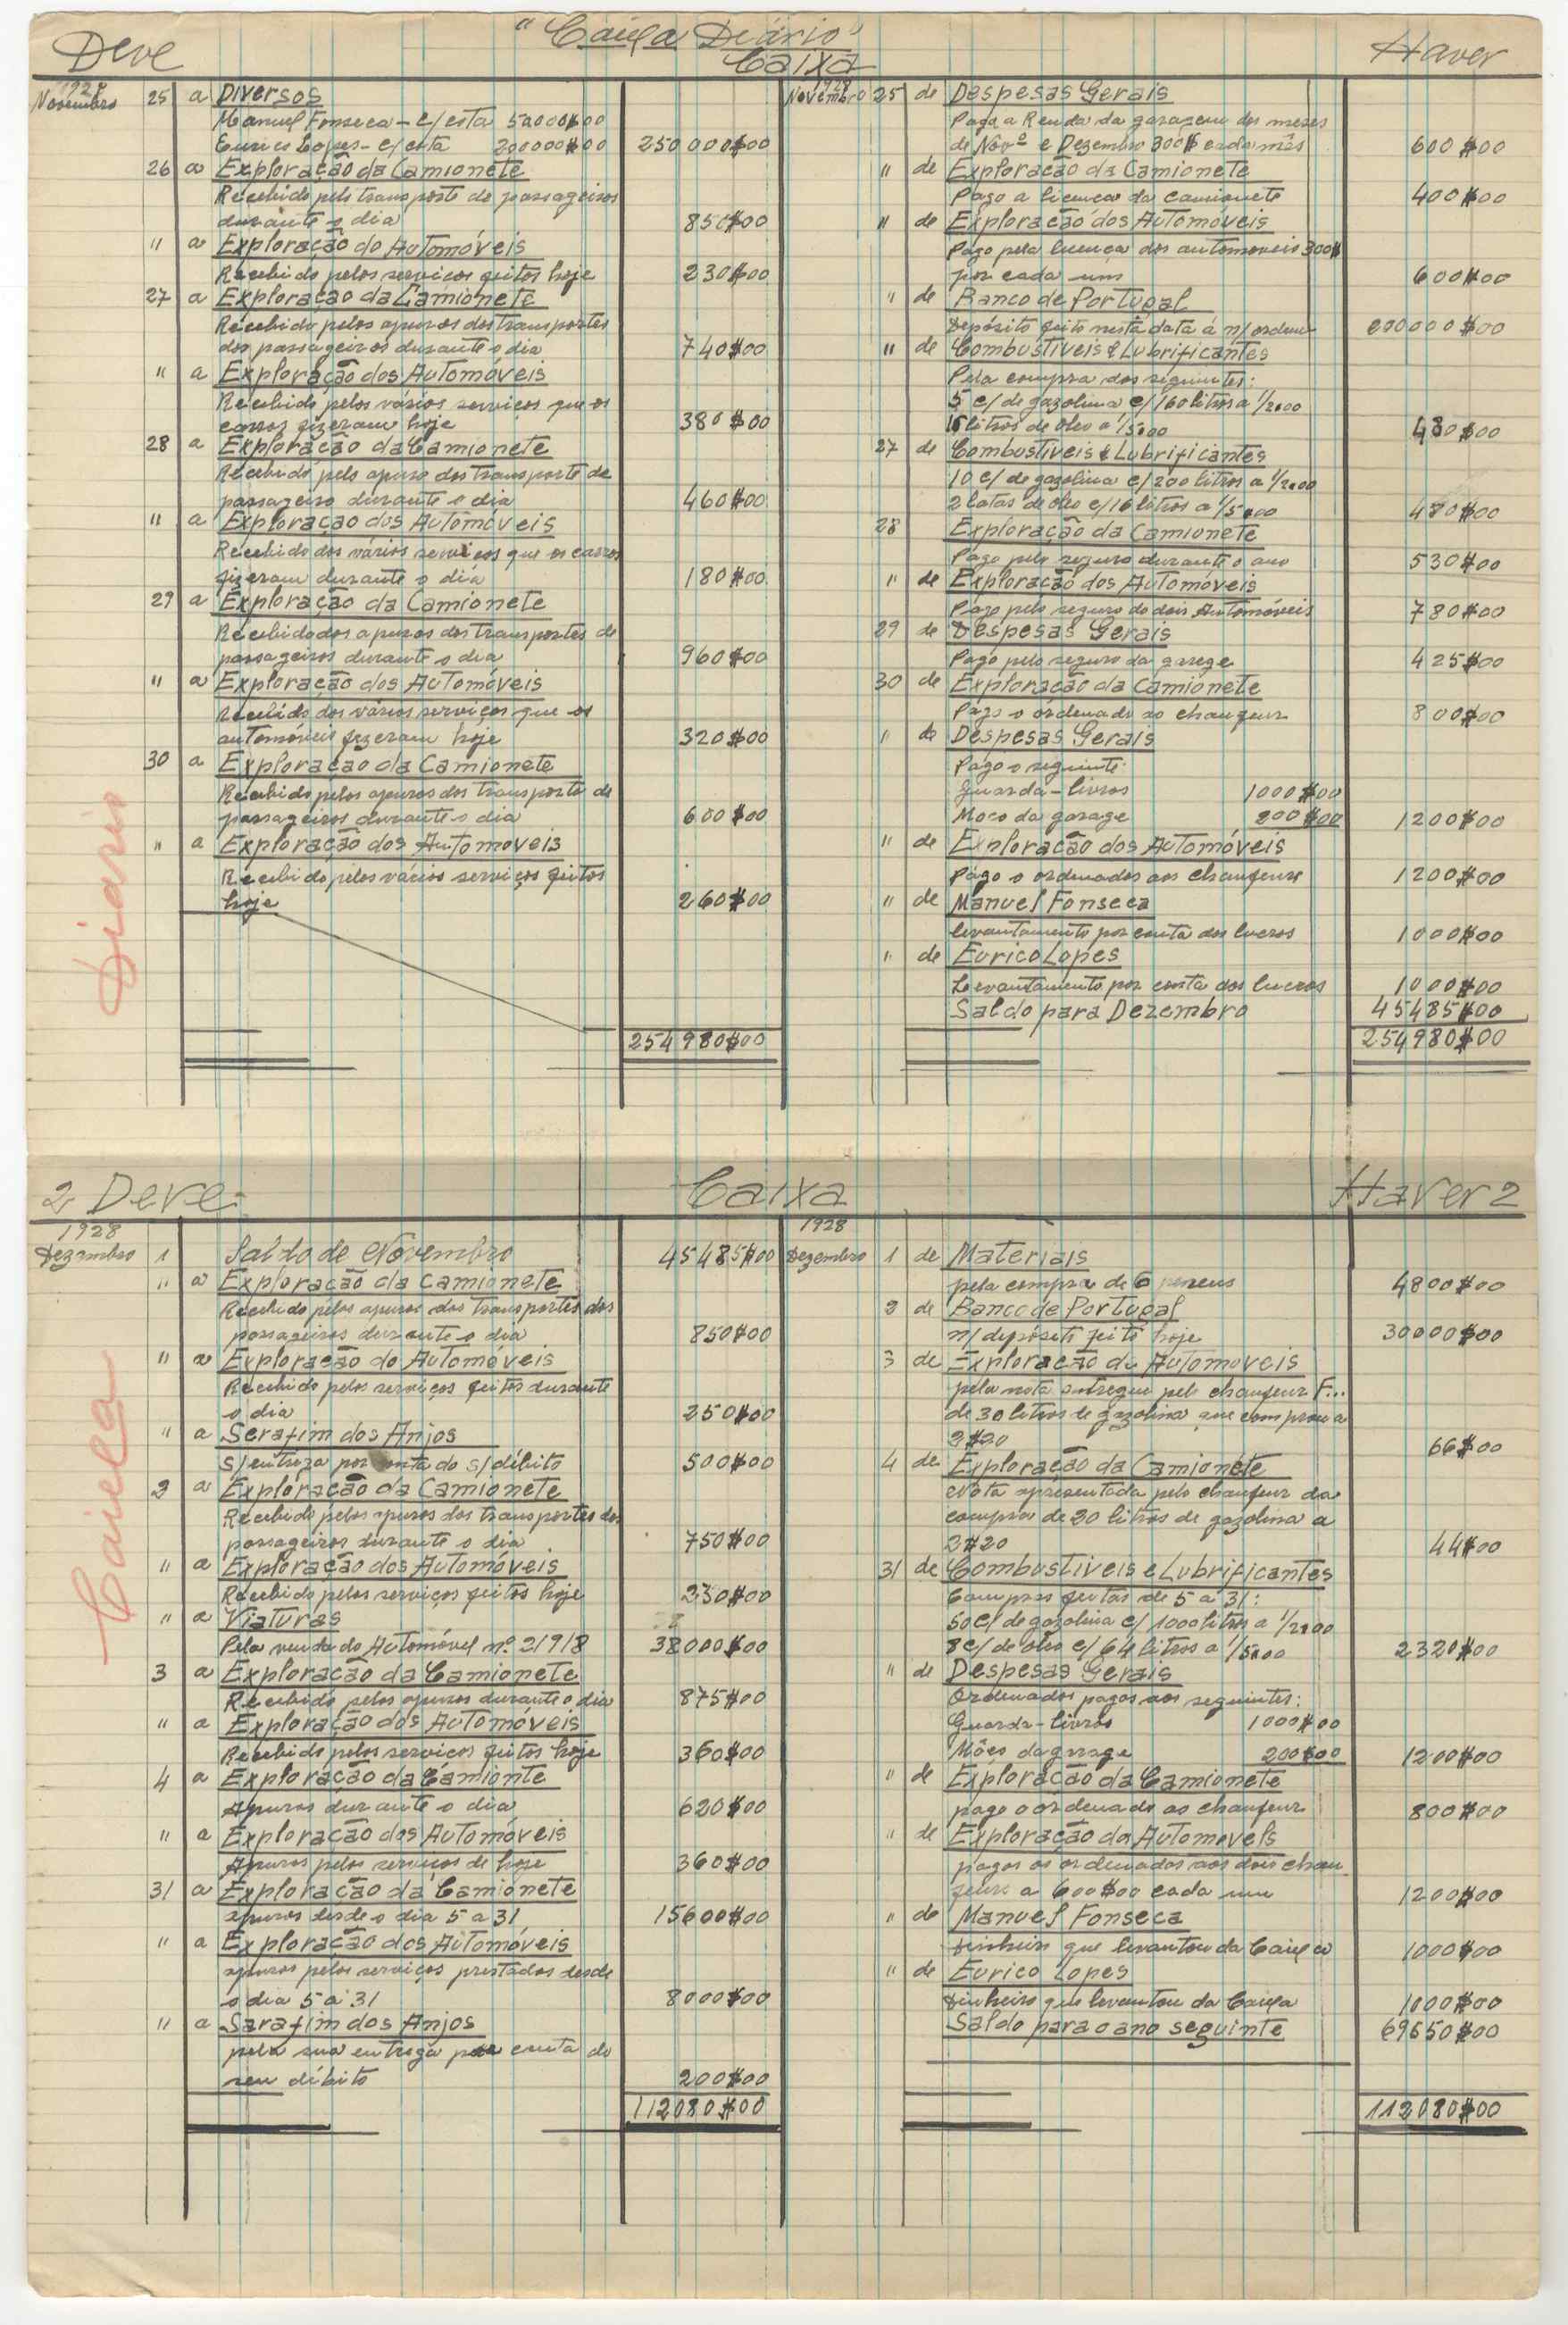 "Caixa Diário"
Deve Caixa Haver
1928
Novembro 25 a Diversos
Manuel Fonseca - c/ cta 50000$00
Eurico Lopes - c/ cta 200000$00 250000$00
26 a Exploração da Camionete
Recebido pelo transporte de passageiros
durante o dia 850$00
" a Exploração do Automóveis
Recebido pelos serviços feitos hoje 230$00
27 a Exploração da Camionete
Recebido pelos apuros dos transportes
dos passageiros durante o dia 740$00
" a Exploração dos Automóveis
Recebido pelos vários serviços que os
carros fizeram hoje 380$00
28 a Exploração da Camionete
Recebido pelo apuro dos transporte de
passageiro durante o dia 460$00
" a Exploração dos Automóveis
Recebido dos vários serviços que os carros
fizeram durante o dia 180$00
29 a Exploração da Camionete
Recebido dos apuros dos transportes de
passageiros durante o dia 960$00
" a Exploração dos Automóveis
Recebido dos vários serviços que os
automóveis fizeram hoje 320$00
30 a Exploração da Camionete
Recebido pelos apuros dos transporte de
passageiros durante o dia 600$00
" a Exploração dos Automoveis
Recebido pelos vários serviços feitos
hoje 260$00
254980$00
Diário
1928
Novembro 25 de Despesas Gerais
Pago a Renda da garagem dos meses
de Novº e Dezembro 300$ cada mês 600$00
" de Exploração da Camionete
Pago a licença da camionete 400$00
" de Exploração dos Automóveis
Pago pela licença dos automoveis 300$
por cada um 600$00
" de Banco de Portugal
Depósito feito nesta data á n/ ordem 200000$00
" de Combustiveis e Lubrificantes
Pela compra dos seguintes:
5 c/ de gazolina c/ 160 litros a 1/2$00
litros de óleo a 1/5$00 480$00
27 de Combustiveis e Lubrificantes
10 c/ de gazolina c/ 200 litros a 1/2$00
2 latas de óleo c/ 16 litros a 1/5$00 480$00
28 Exploração da Camionete
Pago pelo seguro durante o ano 530$00
" de Exploração dos Automóveis
Pago pelo seguro do dois Automóveis 780$00
29 de Despesas Gerais
Pago pelo seguro da garege 425$00
30 de Exploração da Camionete
Pago o ordenado ao chaufeur 800$00
" de Despesas Gerais
Pago o seguinte:
Guarda-livros 1000$00
Moco da garage 200$00 1200$00
" de Exploração dos Automóveis
Pago o ordenados aos chaufeurs 1200$00
" de Manuel Fonseca
levantamento por conta dos lucros 1000$00
" de Eurico Lopes
Levantamento por conta dos lucros 1000$00
Saldo para Dezembro 45485$00
254980$00
2 Deve Caixa Haver 2
1928
Dezembro 1 Saldo de Novembro 45485$00
" a Exploração da Camionete
Recebido pelos apuros dos transportes dos
passageiros durante o dia 850$00
" a Exploração do Automóveis
Recebido pelos serviços feitos durante
o dia 250$00
" a Serafim dos Anjos
s/ entrega por conta do s/ débito 500$00
2 a Exploração da Camionete
Recebido pelos apuros dos transportes dos
passageiros durante o dia 750$00
" a Exploração dos Automóveis
Recebido pelos serviços feitos hoje 230$00
" a Viaturas
Pela venda do Automóvel nº 21918 38000$00
3 a Exploração da Camionete
Recebido pelos apuros durante o dia 875$00
" a Exploração dos Automóveis
Recebido pelos serviços feitos hoje 360$00
4 a Exploração da Camionte
Apuros durante o dia 620$00
" a Exploração dos Automóveis
Apuros pelos serviços de hoje 360$00
31 a Exploração da Camionete
apuros desde o dia 5 a 31 15600$00
" a Exploração dos Automóveis
apuros pelos serviços prestados desde
o dia 5 a 31 8000$00
" a Sarafim dos Anjos
pela sua entrega por conta do
seu débito 200$00
112080$00
Caixa
1928
Dezembro 1 de Materiais
pela compra de 6 pneus 4800$00
2 de Banco de Portugal
n/ depósito feito hoje 30000$00
3 de Exploração de Automoveis
pela nota entregue pelo chaufeur F...
de 30 litros de gazolina que comprou a
2$20 66$00
4 de Exploração da Camionete
Nota apresentada pelo chaufeur da
compra de 20 litros de gazolina a
2$20 44$00
31 de Combustiveis e Lubrificantes
Compras feitas de 5 a 31:
50 c/ de gazolina c/ 1000 litros a 1/2$00
8 c/ de óleo c/ 64 litros a 1/5$00 2320$00
" de Despesas Gerais
Ordenados pagos aos seguintes:
Guarda-livros 1000$00
Môço da garage 200$00 1200$00
" de Exploração da Camionete
pago o ordenado ao chaufeur 800$00
" de Exploração dos Automoveis
pagos os ordenados aos dois chau
feurs a 600$00 cada um 1200$00
" de Manuel Fonseca
Dinheiro que levantou da Caixa 1000$00
" de Eurico Lopes
Dinheiro que levantou da Caixa 1000$00
Saldo para o ano seguinte 69650$00
112080$00